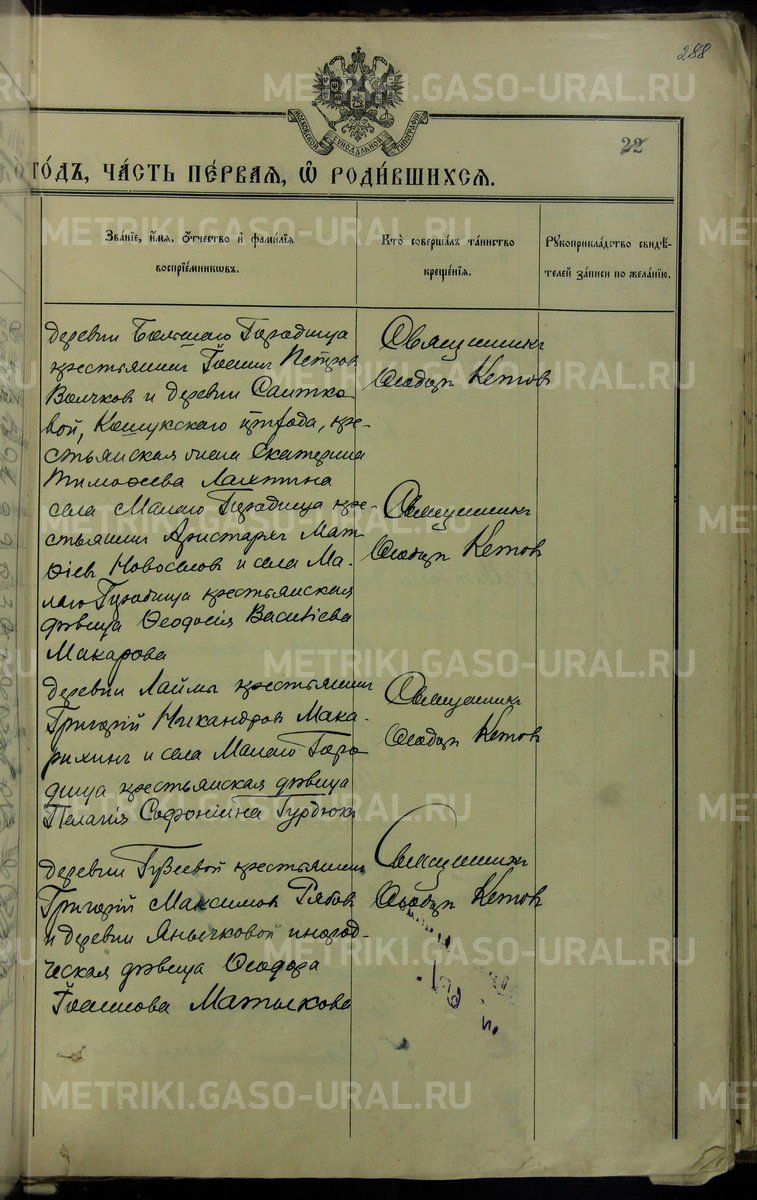 288
МОСКОВСКОЙ СѴНОДАЛЬНОЙ ТИПОГРАФІИ
22
ГО́ДЪ, ЧА́СТЬ ПЕ́РВАЯ, Ѡ҆ РОДИ́ВШИХСЯ.
Зва́нїе, и҆́мя, ѻ҆́тчество и҆ фами́лїя
воспрїе́мникѡвъ.
Кто̀ соверша́лъ та́инство
креще́нїя.
Рꙋкоприкла́дство свидѣ́-
телей за́писи по жела́нїю.
деревни Большаго Городища
крестьянинъ Іоаннъ Петров
Волчков и деревни Саитко-
вой, Кошукскаго прихода, кре-
стьянская жена Екатерина
Тимофеева
Священникъ
Феодоръ Кетов
села Малаго Городища кре-
стьянин Аристархъ Мат-
ѳіев Новоселов и села Ма-
лаго Городища крестьянская
дѣвица Феодосія Васильева
Макарова
Священникъ
Феодоръ Кетов
деревни Лаймы крестьянин
Григорій Никандров Мака-
рихинъ и села Малаго Горо-
дища крестьянская дѣвица
Пелагія Софонійна
Священникъ
Феодоръ Кетов
деревни Гузеевой крестьянин
Григорій Максимов Рябов
и деревни Янычковой инород-
ческая дѣвица Феодора
Іоаннова Матькова
Священникъ
Феодоръ Кетов
METRIKI.GASO-URAL.RU